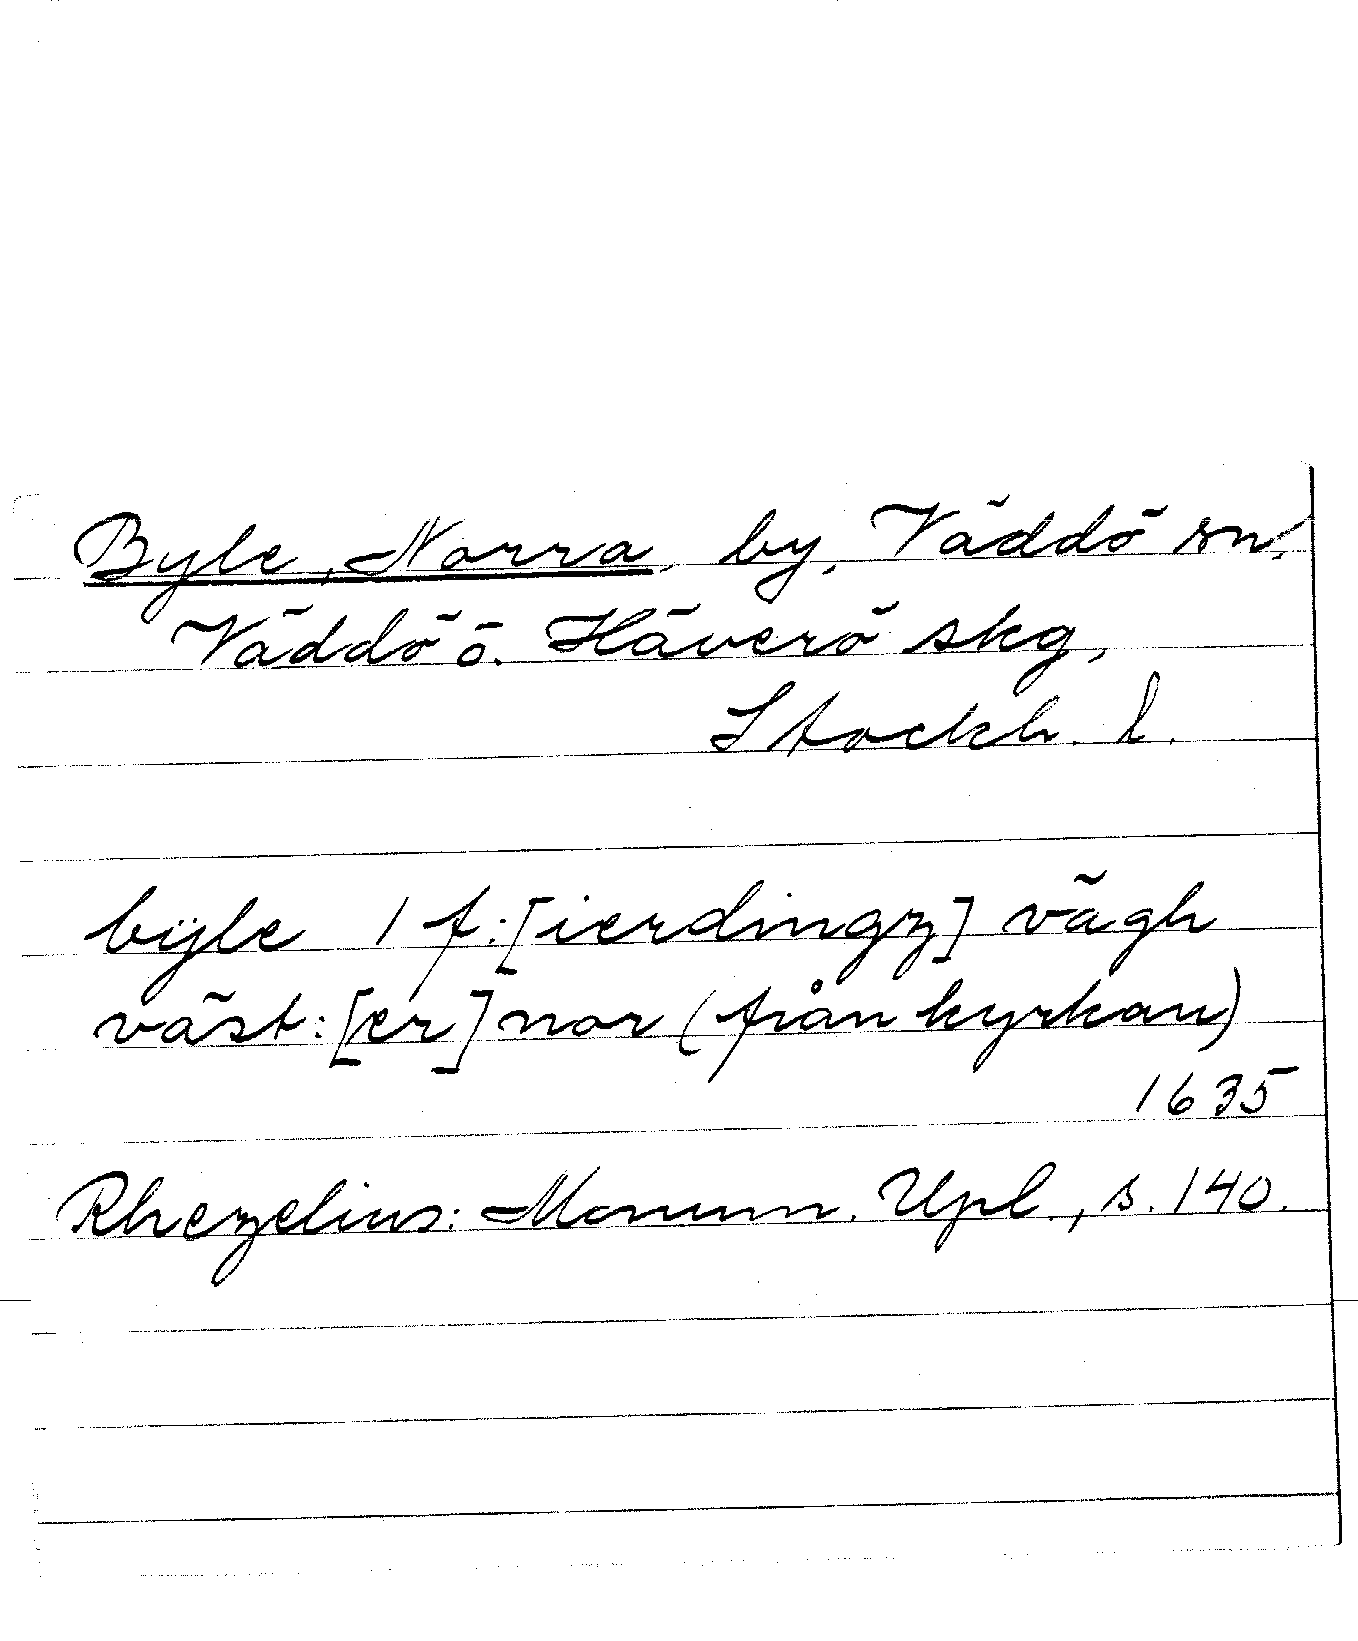 Byle, Norra, by, Väddö sn,
Väddö o. Häverö skg,
Stockh. l.
bÿle 1 f:[ierdingz] vägh
väst:[er] nor (från kyrkan)
1635
Rhezelius: Monum. Upl., s. 140.